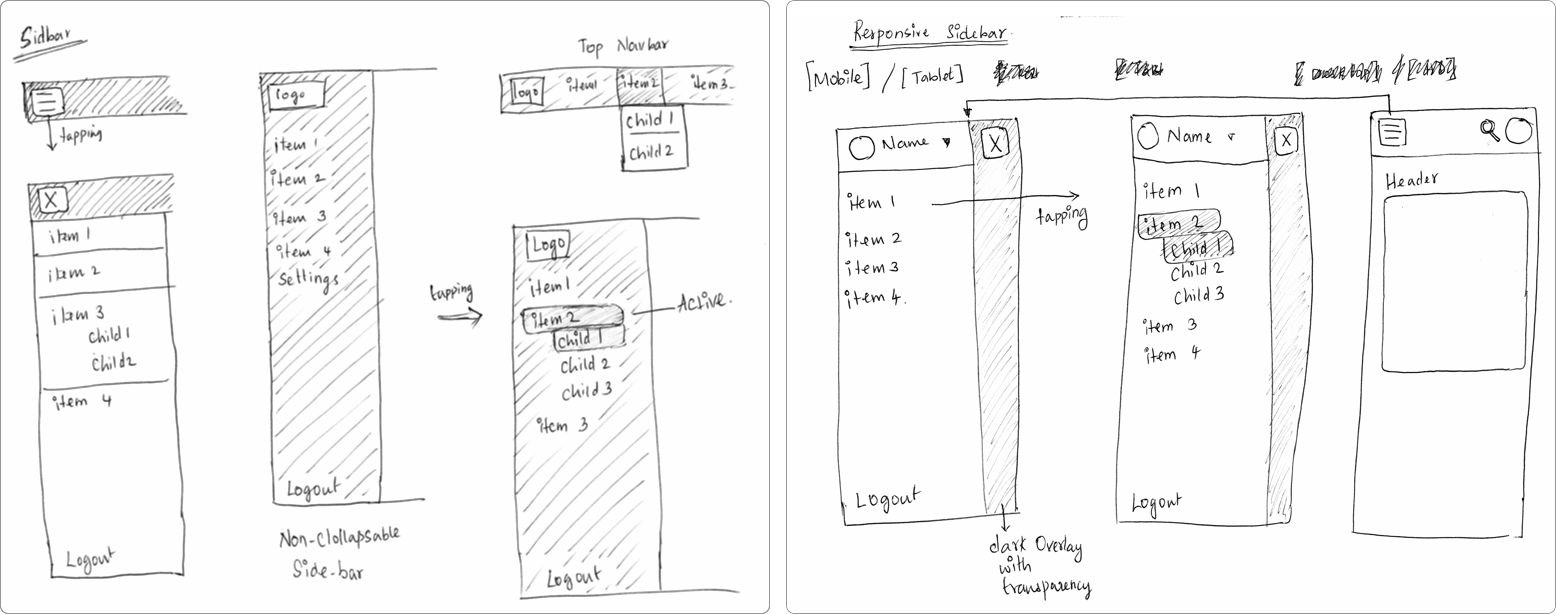 Sidbar
tapping
X
item 1
item 2
item 3
child 1
child2
item 4
Logout
logo
item 1
item 2
item 3
item 4
Settings
Logout
Non-Clollapsable
Side-bar
Top Navbar
logo
item1
item2
item3
child 1
child 2
tapping
Logo
item 1
item 2
child 1
child 2
child 3
item 3
Logout
Active.
Responsive Sidebar
[Mobile] / [Tablet]
Name
X
item 1
item 2
item 3
item 4.
Logout
dark Overlay
with
transparency
tapping
Name
X
item 1
item 2
child 1
child 2
child 3
item 3
item 4
Logout
Header